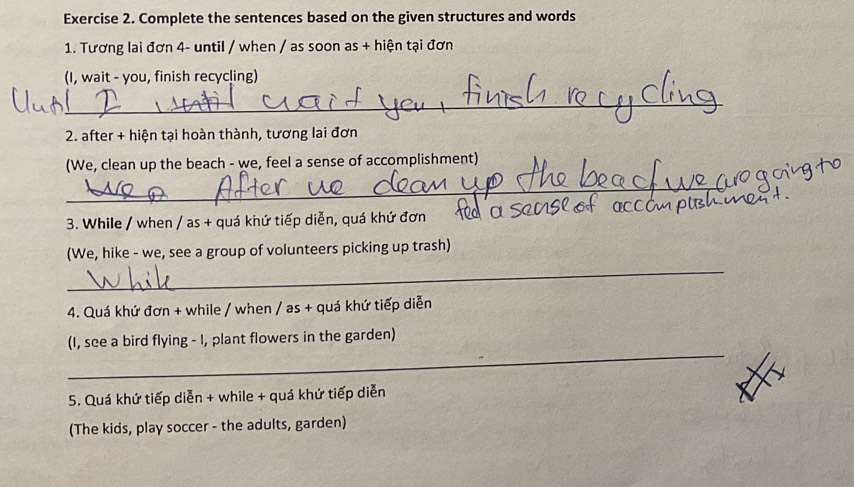 Exercise 2. Complete the sentences based on the given structures and words
1. Tương lai đơn 4- until / when / as soon as + hiện tại đơn
(I, wait - you, finish recycling)
Until I until wait you, finish recycling
2. after + hiện tại hoàn thành, tương lai đơn
(We, clean up the beach - we, feel a sense of accomplishment)
We After we clean up the beach we are going to
feel a sense of accomplishment.
3. While / when / as + quá khứ tiếp diễn, quá khứ đơn
(We, hike - we, see a group of volunteers picking up trash)
While
4. Quá khứ đơn + while / when / as + quá khứ tiếp diễn
(I, see a bird flying - I, plant flowers in the garden)
5. Quá khứ tiếp diễn + while + quá khứ tiếp diễn
(The kids, play soccer - the adults, garden)